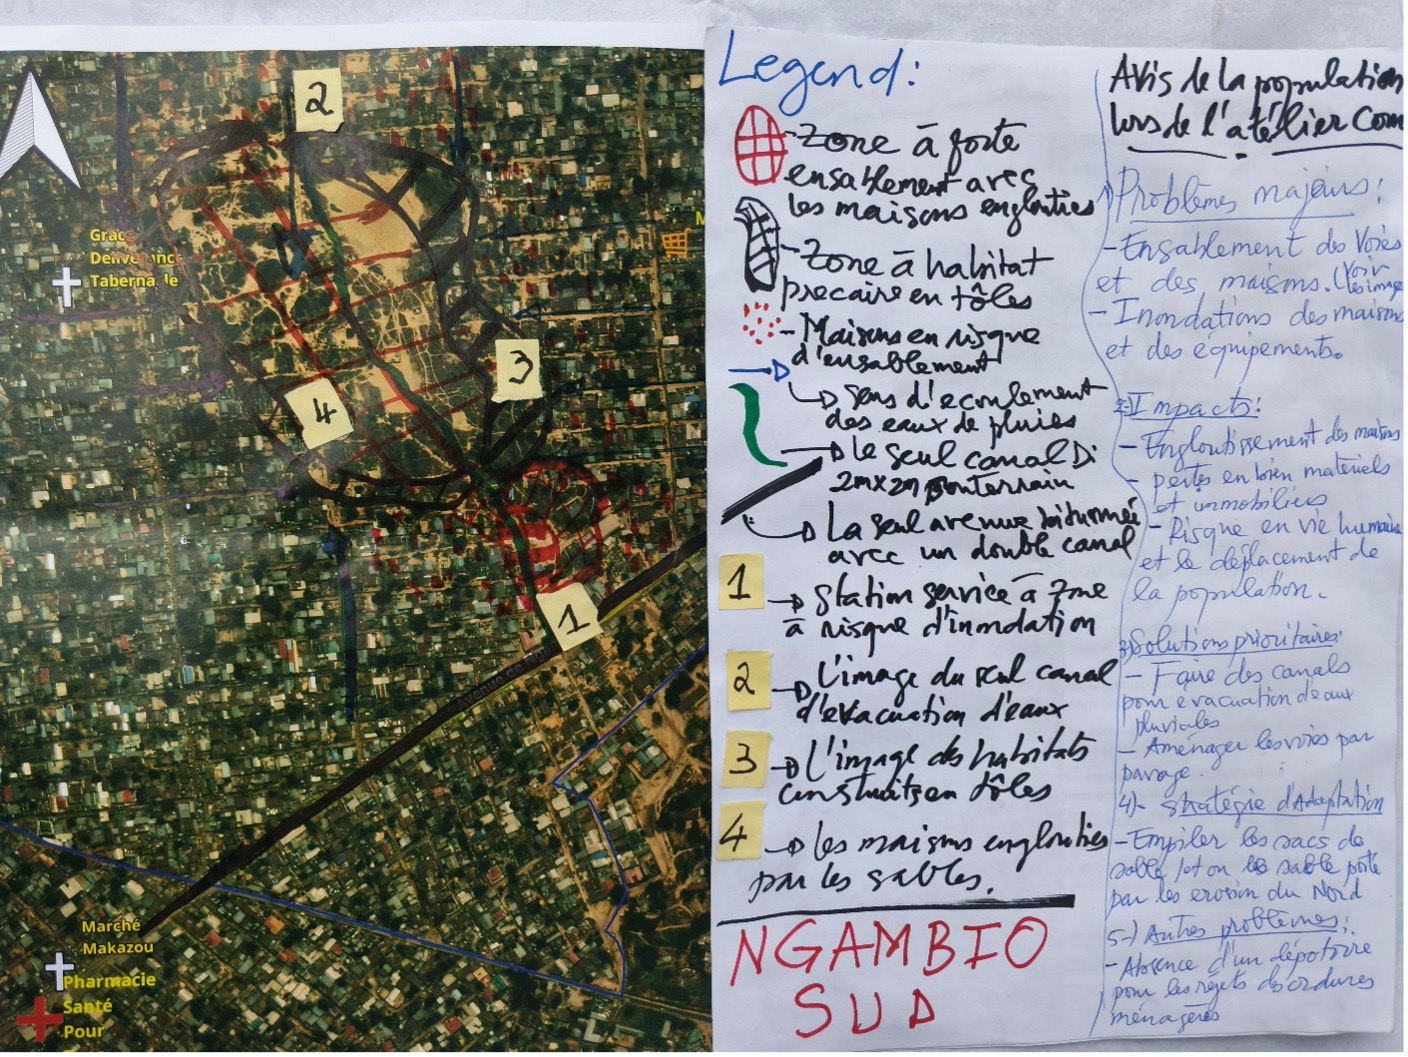 2
3
4
1
Grace
Deliverance
Tabernacle
M
Avenue de
Marché
Makazou
Pharmacie
Santé
Pour
Legend:
- Zone à forte
ensablement avec
les maisons englouties
- Zone à habitat
precaire en tôles
- Maisons en risque
d'ensablement
sens d'ecoulement
des eaux de pluies
le seul canal Di
2mx2m
La seul avenue bitumée
avec un double canal
1 station service à zone
à risque d'inondation
2 L'image du seul canal
d'evacuation d'eaux
3 L'image des habitats
construits en tôles
4 les maisons englouties
par les sables.
NGAMBIO
SUD
Avis de la population
lors de l'atélier Com
1) Problèmes majeurs:
- Ensablement des Voies
et des maisons. (Voir
les image
- Inondations des maisons
et des équipements.
2) Impacts:
- Engloutissement des maisons
- pertes en bien matériels
et immobiliers
- Risque en vie humaine
et le déplacement de
la population.
3) Solutions prioritaires:
- Faire des canals
pour evacuation d'eaux
pluviales
- Aménager les voies par
pavage.
4)- stratégie d'Adaptation
- Empiler les sacs de
sable le sable porté
par les erosion du Nord
5-) Autres problèmes:
- Absence d'un dépotoire
pour les rejets d'ordures
ménagères